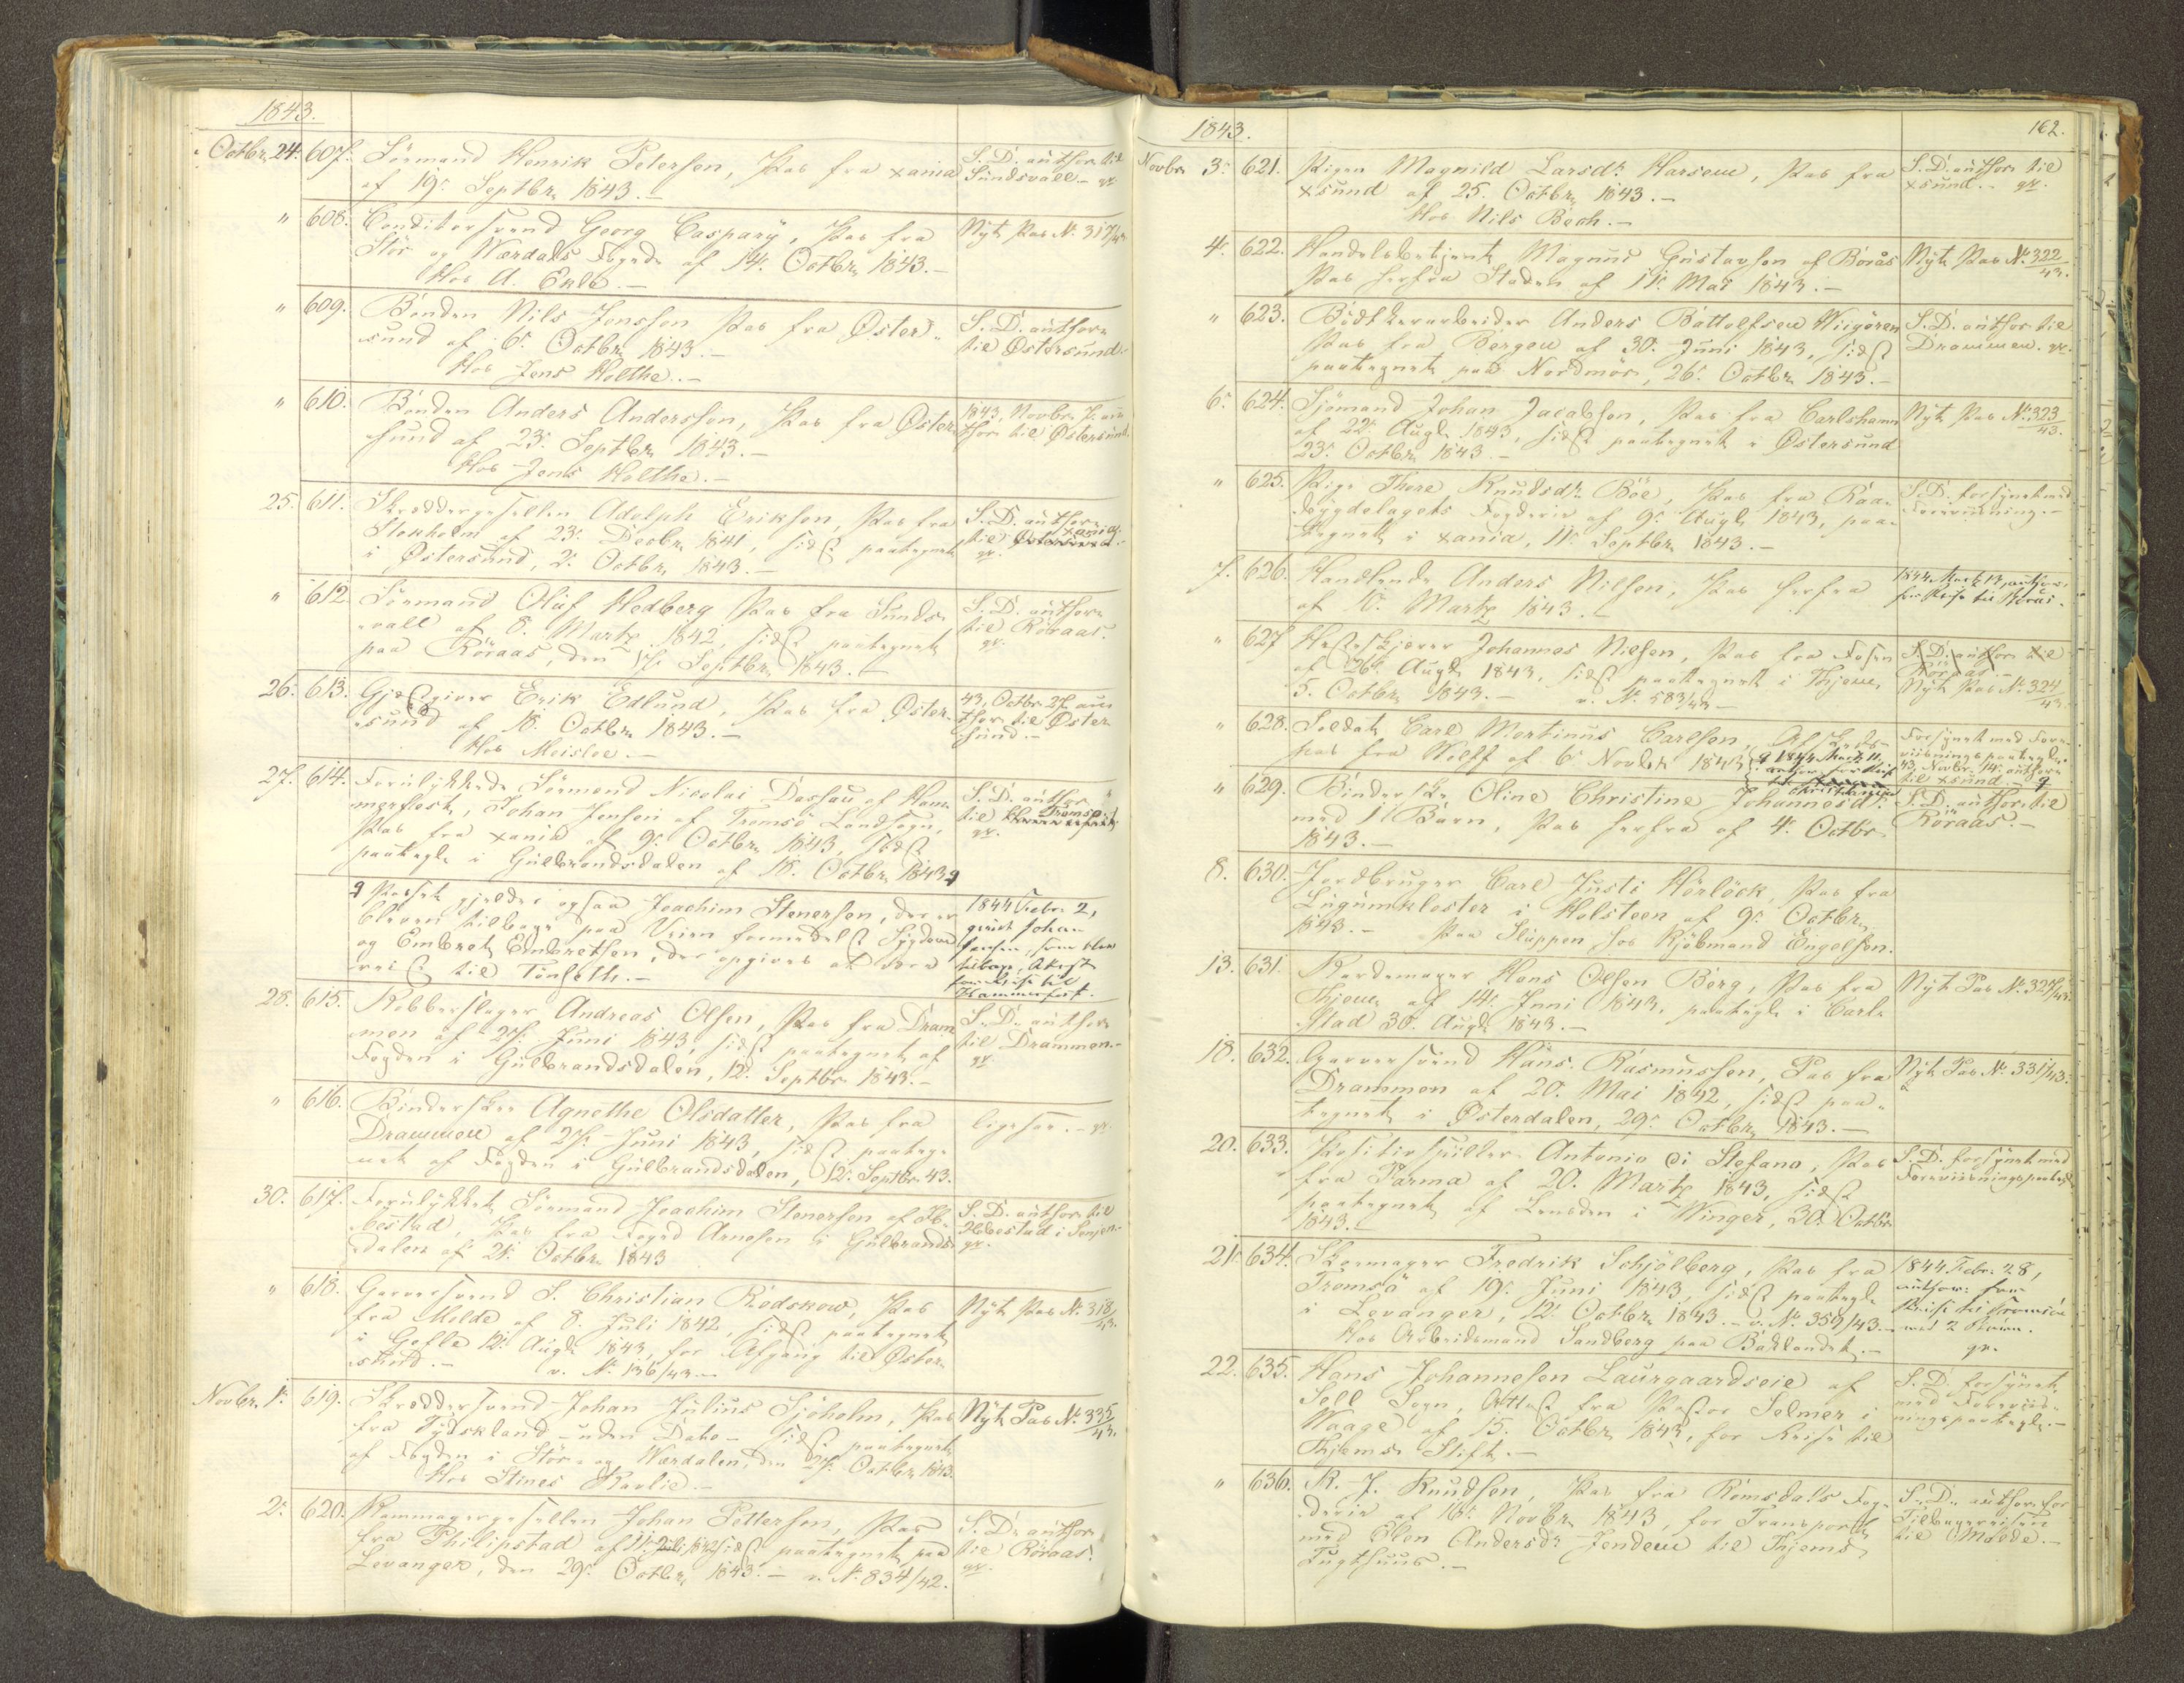 1843.
Octbr. 24. 607. Sömand Henrik Petersen, Pas fra xania
af 19. Septbr. 1843.—
S. D. author. til
Sundsvall.— gr.
" 608. Conditorsvend Georg Caspary, Pas fra
Stör og Værdals Fogderi af 14. Octbr. 1843.—
Hos A. Erlb.—
Nyt Pas No. 317/43
" 609. Bonden Nils Jensson Pas fra Öster-
sund af 6. Octbr. 1843.—
Hos Jens Holthe.—
S. D. author.
til Östersund.
" 610. Bonden Anders Andersson, Pas fra Öster-
sund af 23. Septbr. 1843.—
Hos Jens Holthe.—
1843, Novbr. 7. au-
thor. til Östersund.
25. 611. Skreddergesellen Adolph Erikson, Pas fra
Stokholm af 23. Decbr. 1841, sidst paategnet
i Östersund, 2. Octbr. 1843.—
S. D. author.
til xania
gr.
" 612. Sörmand Oluf Hedberg Pas fra Sunds-
vall af 8. Marts 1842, sidst paategnet
paa Röraas, den 17. Septbr. 1843.—
S. D. author.
til Röraas.
gr.
26. 613. Gjæstgiver Erik Edlund, Pas fra Öster-
sund af 18. Octbr. 1843.—
Hos Meisloe.—
43, Octbr. 27. au-
thor. til Öster-
sund.—
27. 614. Forulykkede Sömand Nicolai Dassau af Ham-
merfest, Johan Jensen af Tromsö Landsogn,
Pas fra xania af 9. Octbr. 1843, sidst
paategn. i Gulbrandsdalen af 18. Octbr. 1843
S. D. author.
til Tromsö
gr.
Passet gjelder ogsaa Joachim Stenersen, der er
bleven tilbage paa Veien formedelst Sygdom
og Embret Embretsen, der opgives at være
reist til Tönseth.—
1844 Febr. 2,
Johan
Jensen, som blev
tilbage, Attest
for Reise til
Hammerfest.
28. 615. Kobberslager Andreas Olsen, Pas fra Dram-
men af 27. Juni 1843, sidst paategnet af
Fogden i Gulbrandsdalen, 12. Septbr. 1843.—
S. D. author.
til Drammen.—
gr.
" 616. Binderske Agnethe Olsdatter, Pas fra
Drammen af 27. Juni 1843, sidst paateg-
net af Fogden i Gulbrandsdalen, 12. Septbr. 43.
ligesaa.— gr.
30. 617. Forulykket Sömand Joachim Stenersen af Ib-
bestad, Pas fra Fogd Arnesen i Gulbrands-
dalen af 21. Octbr. 1843
S. D. author. til
Ibbestad i Senjen.
gr.
" 618. Garversvend S. Christian Rödskow, Pas
fra Molde af 8. Juli 1842, sidst paategnet
i Gefle 12. Augt. 1843, for Afgang til Öster-
sund.— v. No. 136/43.—
Nyt Pas No. 318/43.
Novbr. 1. 619. Skreddersvend Johan Julius Sjöholm, Pas
fra Tydskland—uden Dato— sidst paategnet
af Fogden i Stör- og Værdalen, den 27. Octbr. 1843.
Hos Stines Kavlie.—
Nyt Pas No. 335/43.
2. 620. Kammagergesellen Johan Petterson, Pas
fra Philipstad af 11. Juli 1842 sidst paategnet paa
Levanger, den 29. Octbr. 1843.— v. No. 834/42.
S. D. author.
til Röraas.
gr.
1843. 162.
Novbr. 3. 621. Pigen Magnild Larsdr. Harseue, Pas fra
xsund af 25. Octbr. 1843.—
Hos Nils Bech.—
S. D. author. til
xsund.— gr.
4. 622. Handelsbetjent Magnus Gustavson af Borås
Pas herfra Staden af 11. Mai 1843.—
Nyt Pas No. 322/43.
" 623. Bödtkerarbeider Anders Battolfsen Wiigören
Pas fra Bergen af 30. Juni 1843, sidst
paategnet paa Nordmör, 26. Octbr. 1843.—
S. D. author. til
Drammen. gr.
6. 624. Sjömand Johan Jacobson, Pas fra Carlshamn
af 22. Augt. 1843, sidst paategnet i Östersund
23. Octbr. 1843.—
Nyt Pas No. 323/43.
" 625. Pige Thore Knudsdr. Böe, Pas fra Raa-
bygdelagets Fogderie af 9. Augt. 1843, paa-
tegnet i xania, 11. Septbr. 1843.—
S. D. forsynet med
Foreviisning.—
7. 626. Handlende Anders Nilsen, Pas herfra
af 10. Marts 1843.—
1844 Marts 12, author.
for Reise til Borås.
" 627 Hesteskjærer Johannes Nielsen, Pas fra Fosen
af 26. Augt. 1843, sidst paategnet i Thjem,
5. Octbr. 1843.— v. No. 583/43—
S. D. author. til
Röraas.—
Nyt Pas No. 324/43.
" 628. Soldat Carl Martinus Carlsen, Afskeds-
pas fra Wolff af 6. Novbr. 1843
1844 Marts 11,
author. for Reise
til Christiania
Forsynet med Fore-
viisningspaategn.
43, Novbr. 14. author.
til xsund.—
" 629. Binderske Oline Christine Johannesdr.
med 1 Barn, Pas herfra af 4. Octbr.
1843.—
S. D. author. til
Röraas.—
8. 630. Jordbruger Carl Justi Hörlöck, Pas fra
Lügumkloster i Holsteen af 9. Octbr.
1843.— Paa Sluppen hos Kjöbmand Engelsen.
13. 631. Kardemager Hans Olsen Berg, Pas fra
Thjem af 14. Juni 1843, paategn. i Carl-
stad 30. Augt. 1843.—
Nyt Pas No. 327/43.
18. 632. Garversvend Hans Rasmussen, Pas fra
Drammen af 20. Mai 1842, sidst paa-
tegnet i Österdalen, 29. Octbr. 1843.—
Nyt Pas No. 331/43.
20. 633. Positivspiller Antonio di Stefano, Pas
fra Parma af 20. Marts 1843, sidst
paategnet af Lensmden i Winger, 30. Octbr.
1843.—
S. D. forsynet med
Foreviisningspaategn.
21. 634. Skomager Fredrik Schjölberg, Pas fra
Tromsö af 19. Juni 1843, sidst paategn.
i Levanger, 12. Octbr. 1843.— v. No. 359/43.—
Hos Arbeidsmand Sandberg paa Baklandet.—
1844 Febr. 28,
author. for
Reise til Tromsöe
med 2 Börn.
gr.
22. 635. Hans Johannesen Laurgaardseie af
Sell Sogn, Attest fra Pastor Selmer i
Waage af 15. Octbr. 1843, for Reise til
Thjems Stift.—
S. D. forsynet
med Foreviis-
ningspaategn.—
" 636. K. J. Knudsen, Pas fra Romsdals Fog-
derie af 16. Novbr. 1843, for Transport
med Elen Andersdr. Jendem til Thjems
Tugthuus.—
S. D. author. for
Tilbagereisen
til Molde.—